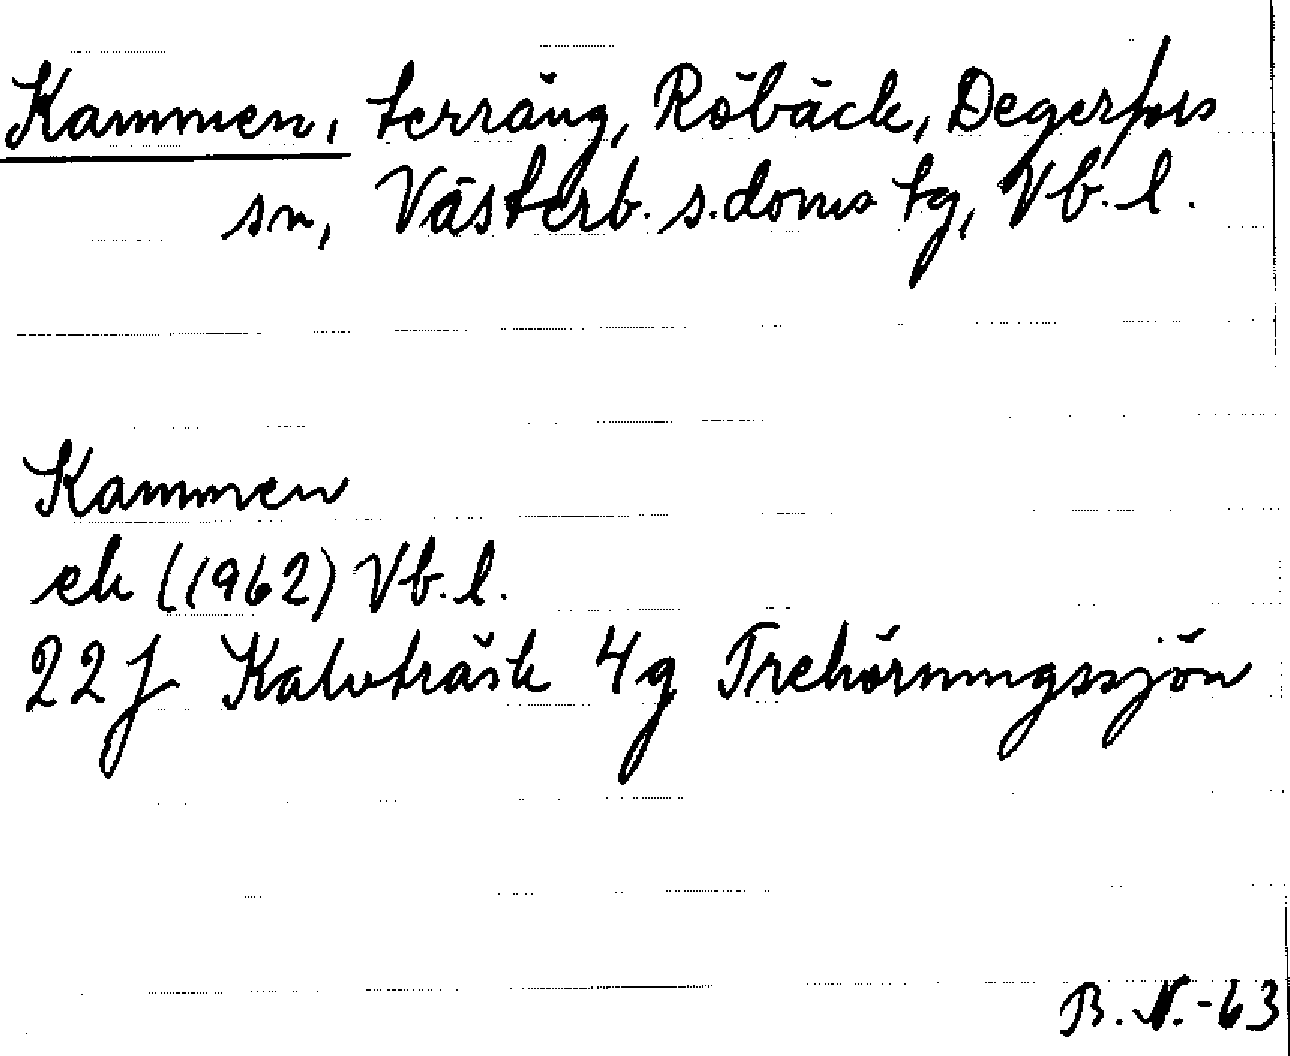 Kammen, terräng, Röbäck, Degerfors
sn, Västerb. s. doms tg, Vb. l.
Kammen
ek (1962) Vb. l.
22 J Kalvträsk 4g Trehörningssjön
B. N. -63